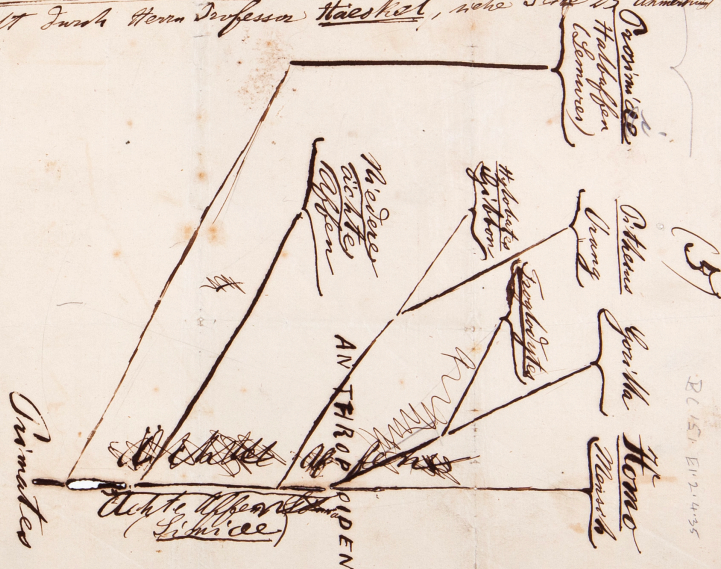 durch Herrn Professor Haeckel, siehe
Prosimiae
Halbaffen
(Lemures)
Niedere
ächte
Affen
Hylobates
Gibbon
Pithecus
Urang
Troglodytes
Gorilla
Homo
Mensch
ANTHROPOIDEN
Ächte Affen
(Simiae)
Primates
(5)